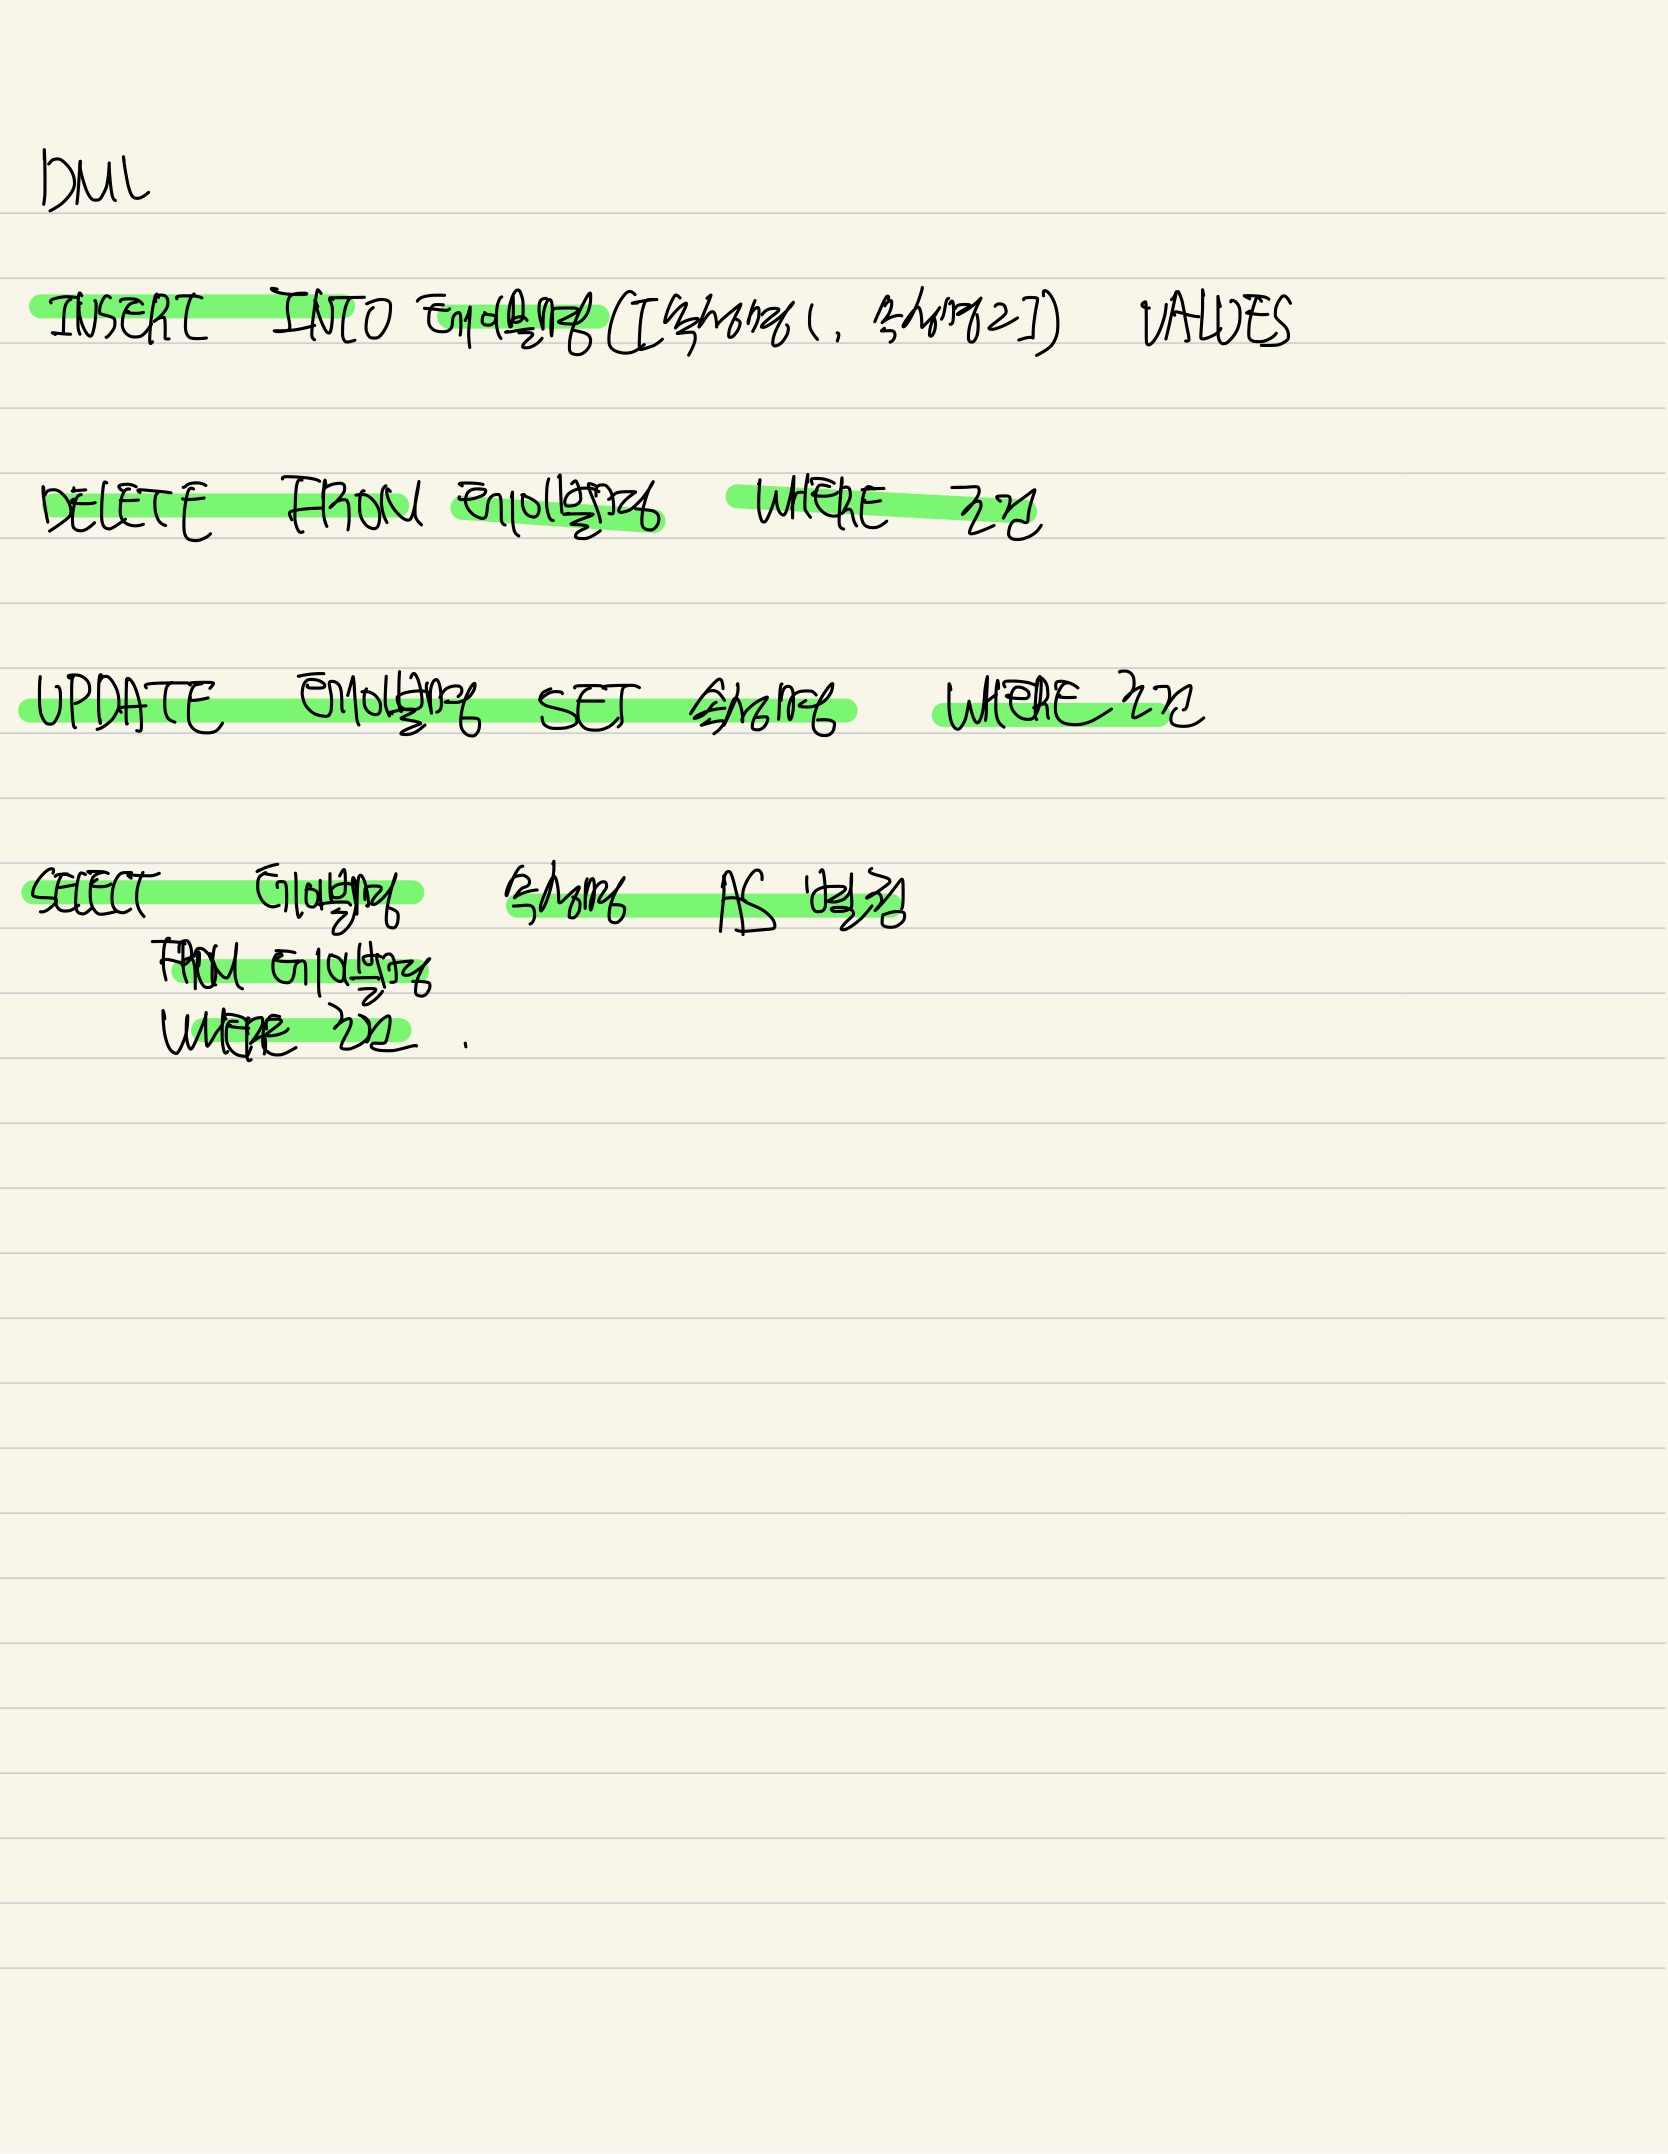 DML
INSERT INTO 테이블명([속성명1, 속성명2]) VALUES
DELETE FROM 테이블명 WHERE 조건
UPDATE 테이블명 SET 속성명 WHERE 조건
SELECT 테이블명 속성명 AS 별칭
FROM 테이블명
WHERE 조건.